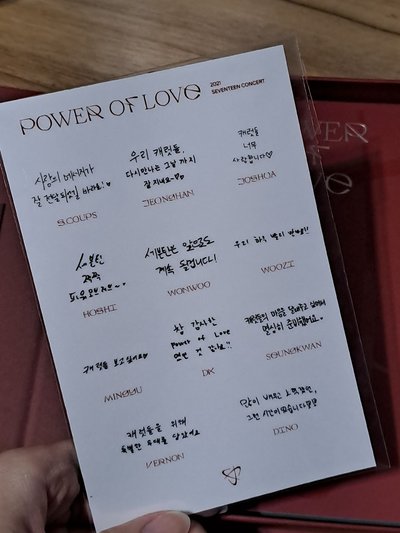 POWER OF LOVE
2021
SEVENTEEN CONCERT
사랑의 메시지가
잘 전달되었길 바라요!
S.COUPS
우리 캐럿들,
다시 만나는 그날 까지
잘 지내요~♡
JEONGHAN
캐럿들
너무
사랑합니다♡
JOSHUA
세븐틴
짝짝
HOSHI
세븐틴은 앞으로도
계속 들겁니다!
WONWOO
우리 하루 빨리 만나요!!
WOOZI
캐럿들 보고싶어요♡
MINGYU
참 감사한
Power of Love
DK
캐럿들의 마음을 달래주고 싶어서
열심히 준비했어요
SEUNGKWAN
캐럿들을 위해
특별한 무대를 담았어요
VERNON
많이 배우고 느꼈던,
그런 시간이었습니다♡♡
DINO
POWER
OF
LOVE